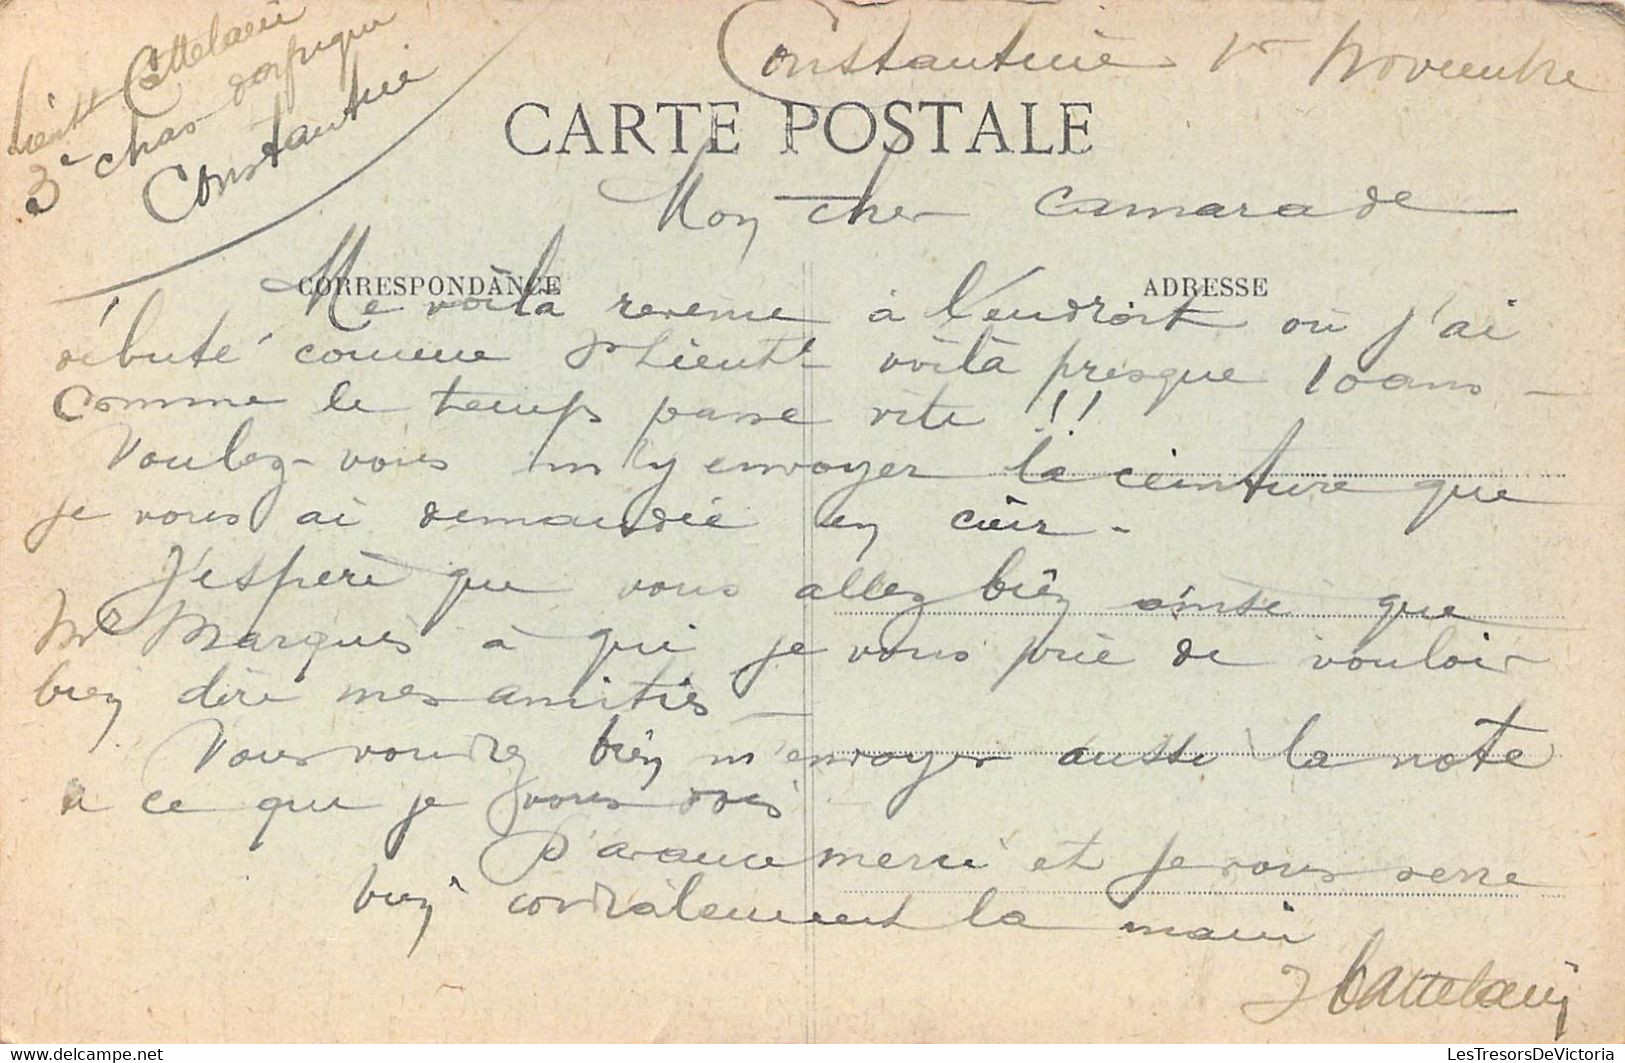 Lieutt Cattelain
3e chas d'afrique
Constantine
Constantine 1er Novembre
CARTE POSTALE
Mon cher camarade
CORRESPONDANCE
ADRESSE
Me voilà revenu à l'endroit où j'ai
débuté comme s/lieutt voilà presque 10 ans -
Comme le temps passe vite !!
Voulez-vous m'y envoyer la ceinture que
je vous ai demandée en cuir -
J'espère que vous allez bien ainsi que
Mr Marquis à qui je vous prie de vouloir
bien dire mes amitiés -
Vous voudrez bien m'envoyer aussi la note
de ce que je vous dois
D'avance merci et je vous serre
bien cordialement la main
J Cattelain
LesTresorsDeVictoria.com
Ceci est une image de delcampe.net